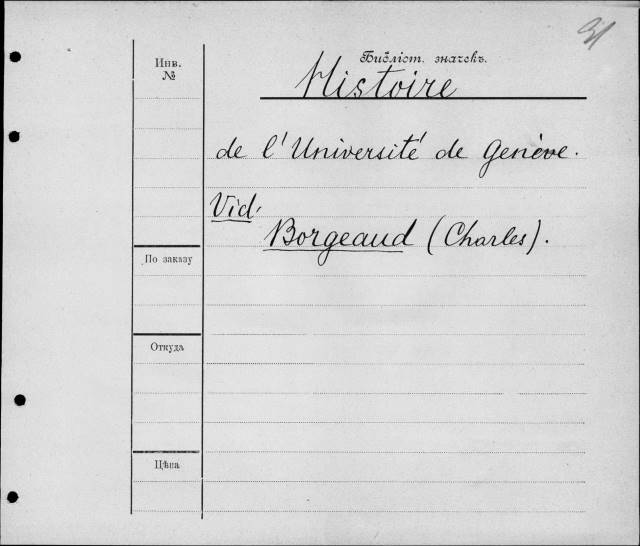 31
Инв.
№
Библіот. значекъ.
Histoire
de l'Université de Genève.
Vid.
Borgeaud (Charles).
По заказу
Откуда
Цѣна